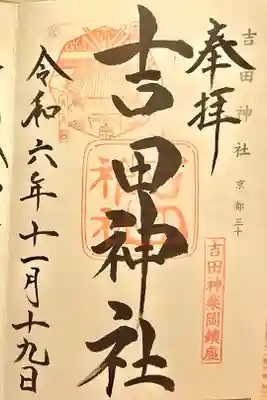 吉田神社 京都三十
奉拝
吉田神楽岡鎮座
吉田神社
令和六年十一月十九日